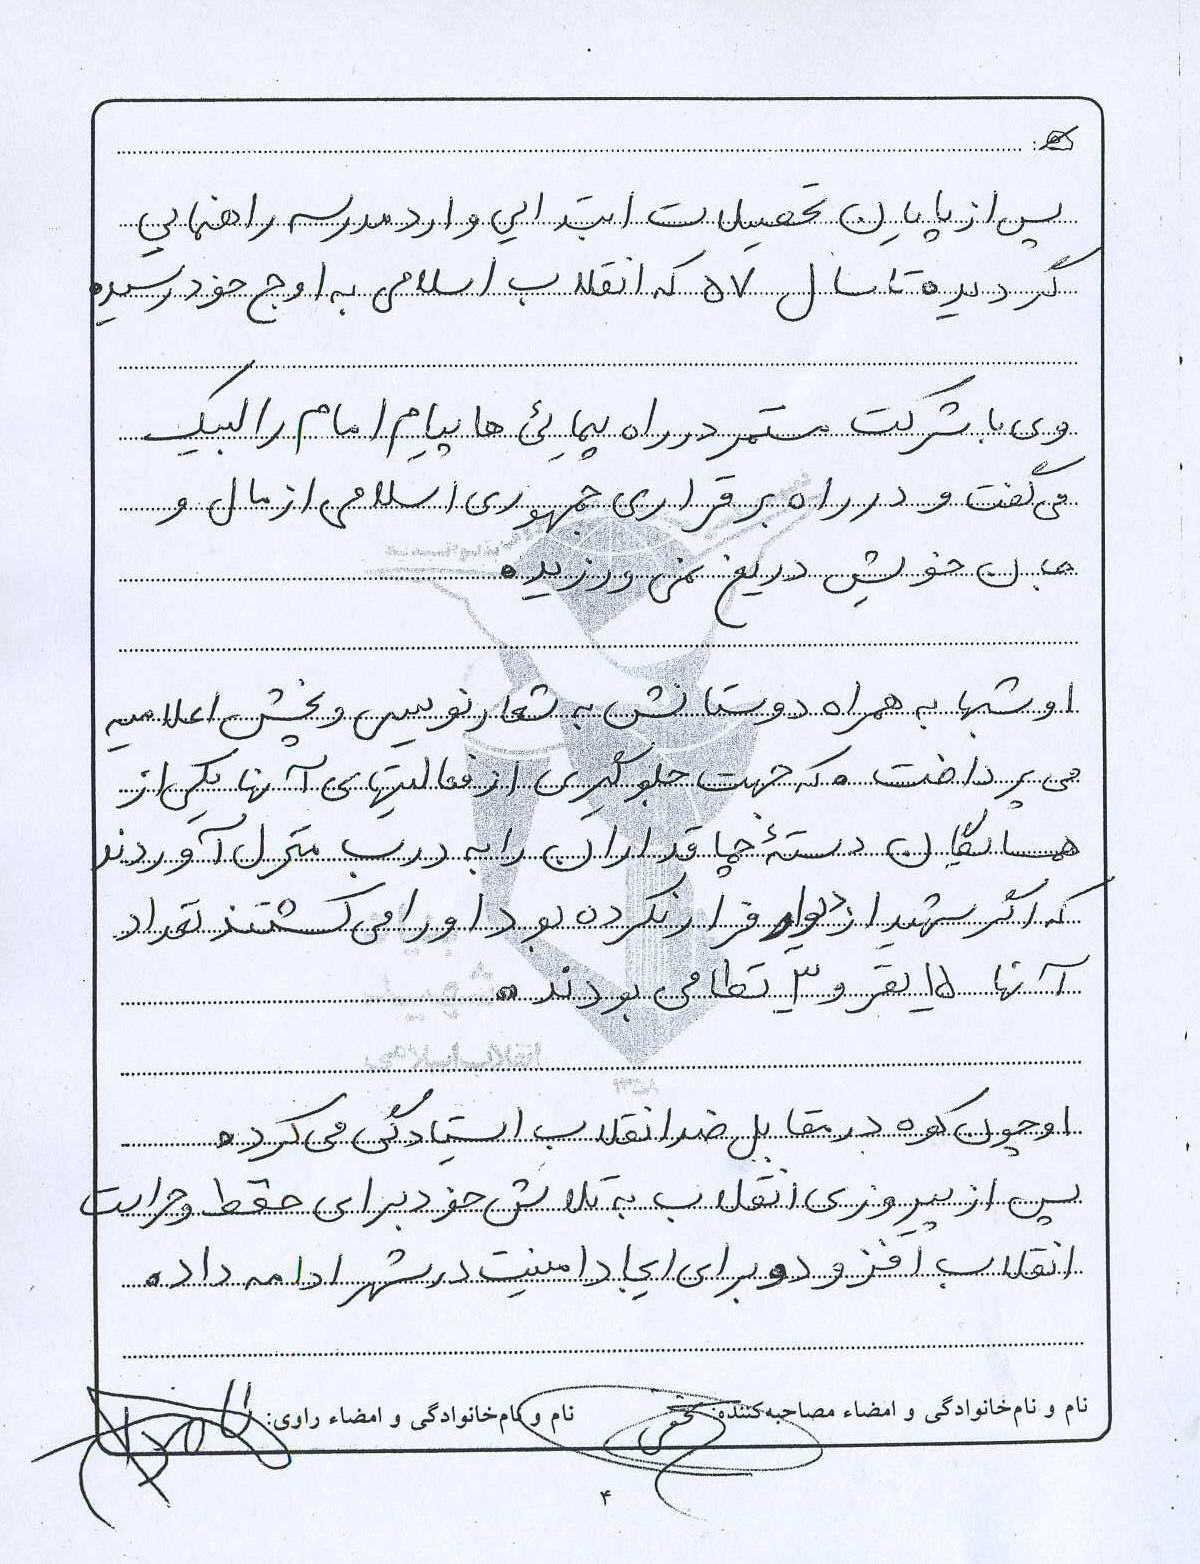 پس از پایان تحصیلات ابتدایی وارد مدرسه راهنمایی
گردیده تا سال ۵۷ که انقلاب اسلامی به اوج خود رسیده
وی با شرکت مستمر در راه پیمائی ها پیام امام را لبیک
می گفت و در راه برقراری جمهوری اسلامی از مال و
جان خویش دریغ نمی ورزید.
او شبها به همراه دوستانش به شعارنویسی و پخش اعلامیه
می پرداخت. که جهت جلوگیری از فعالیتهای آنها یکی از
همسایگان دستۀ چماقداران را به درب منزل آوردند
که اگر شهید از دیوار فرار نکرده بود او را می کشتند تعداد
آنها ۱۵ نفر و ۳ نظامی بودند.
او چون کوه در مقابل ضدانقلاب ایستادگی می کرد.
پس از پیروزی انقلاب به تلاش خود برای حفظ و حراست
انقلاب افزود و برای ایجاد امنیت در شهر ادامه داد.
نام و نام‌خانوادگی و امضاء مصاحبه‌کننده:
نام و نام‌خانوادگی و امضاء راوی:
۴